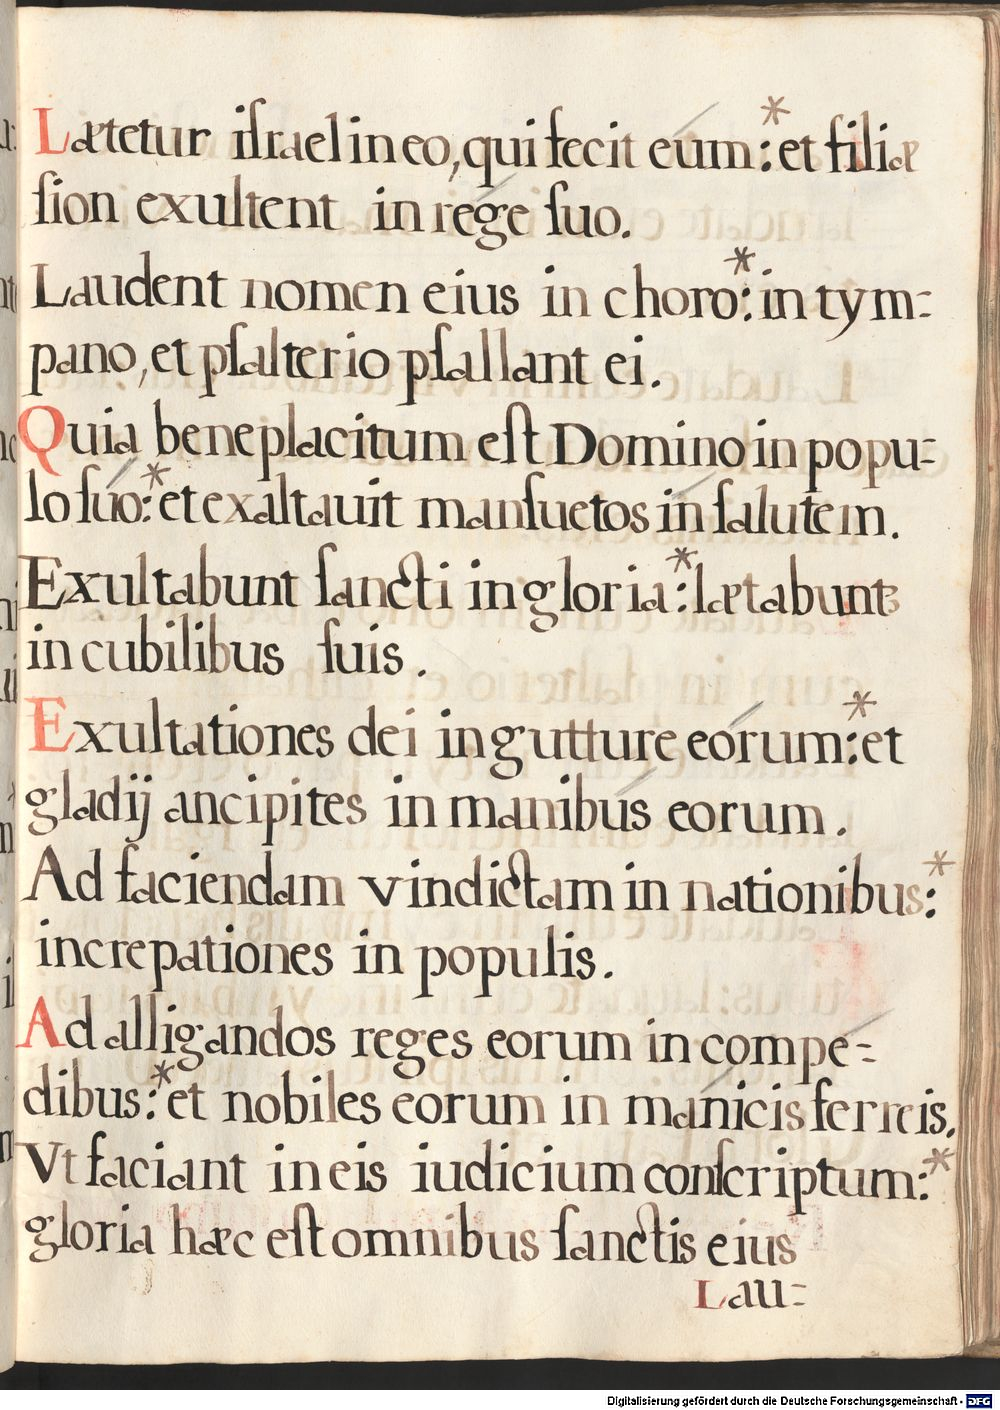 Lætetur iſrael in eo, qui fecit eum:* et filiæ
ſion exultent in rege ſuo.
Laudent nomen eius in choro:* in tym-
pano, et pſalterio pſallant ei.
Quia beneplacitum eſt Domino in popu-
lo ſuo:* et exaltauit manſuetos in ſalutem.
Exultabunt ſancti in gloria:* lætabunt
in cubilibus ſuis.
Exultationes dei in gutture eorum:* et
gladij ancipites in manibus eorum.
Ad faciendam vindictam in nationibus:*
increpationes in populis.
Ad alligandos reges eorum in compe-
dibus:* et nobiles eorum in manicis ferreis.
Vt faciant in eis iudicium conſcriptum:*
gloria hæc eſt omnibus ſanctis eius
Lau-
Digitalisierung gefördert durch die Deutsche Forschungsgemeinschaft - DFG